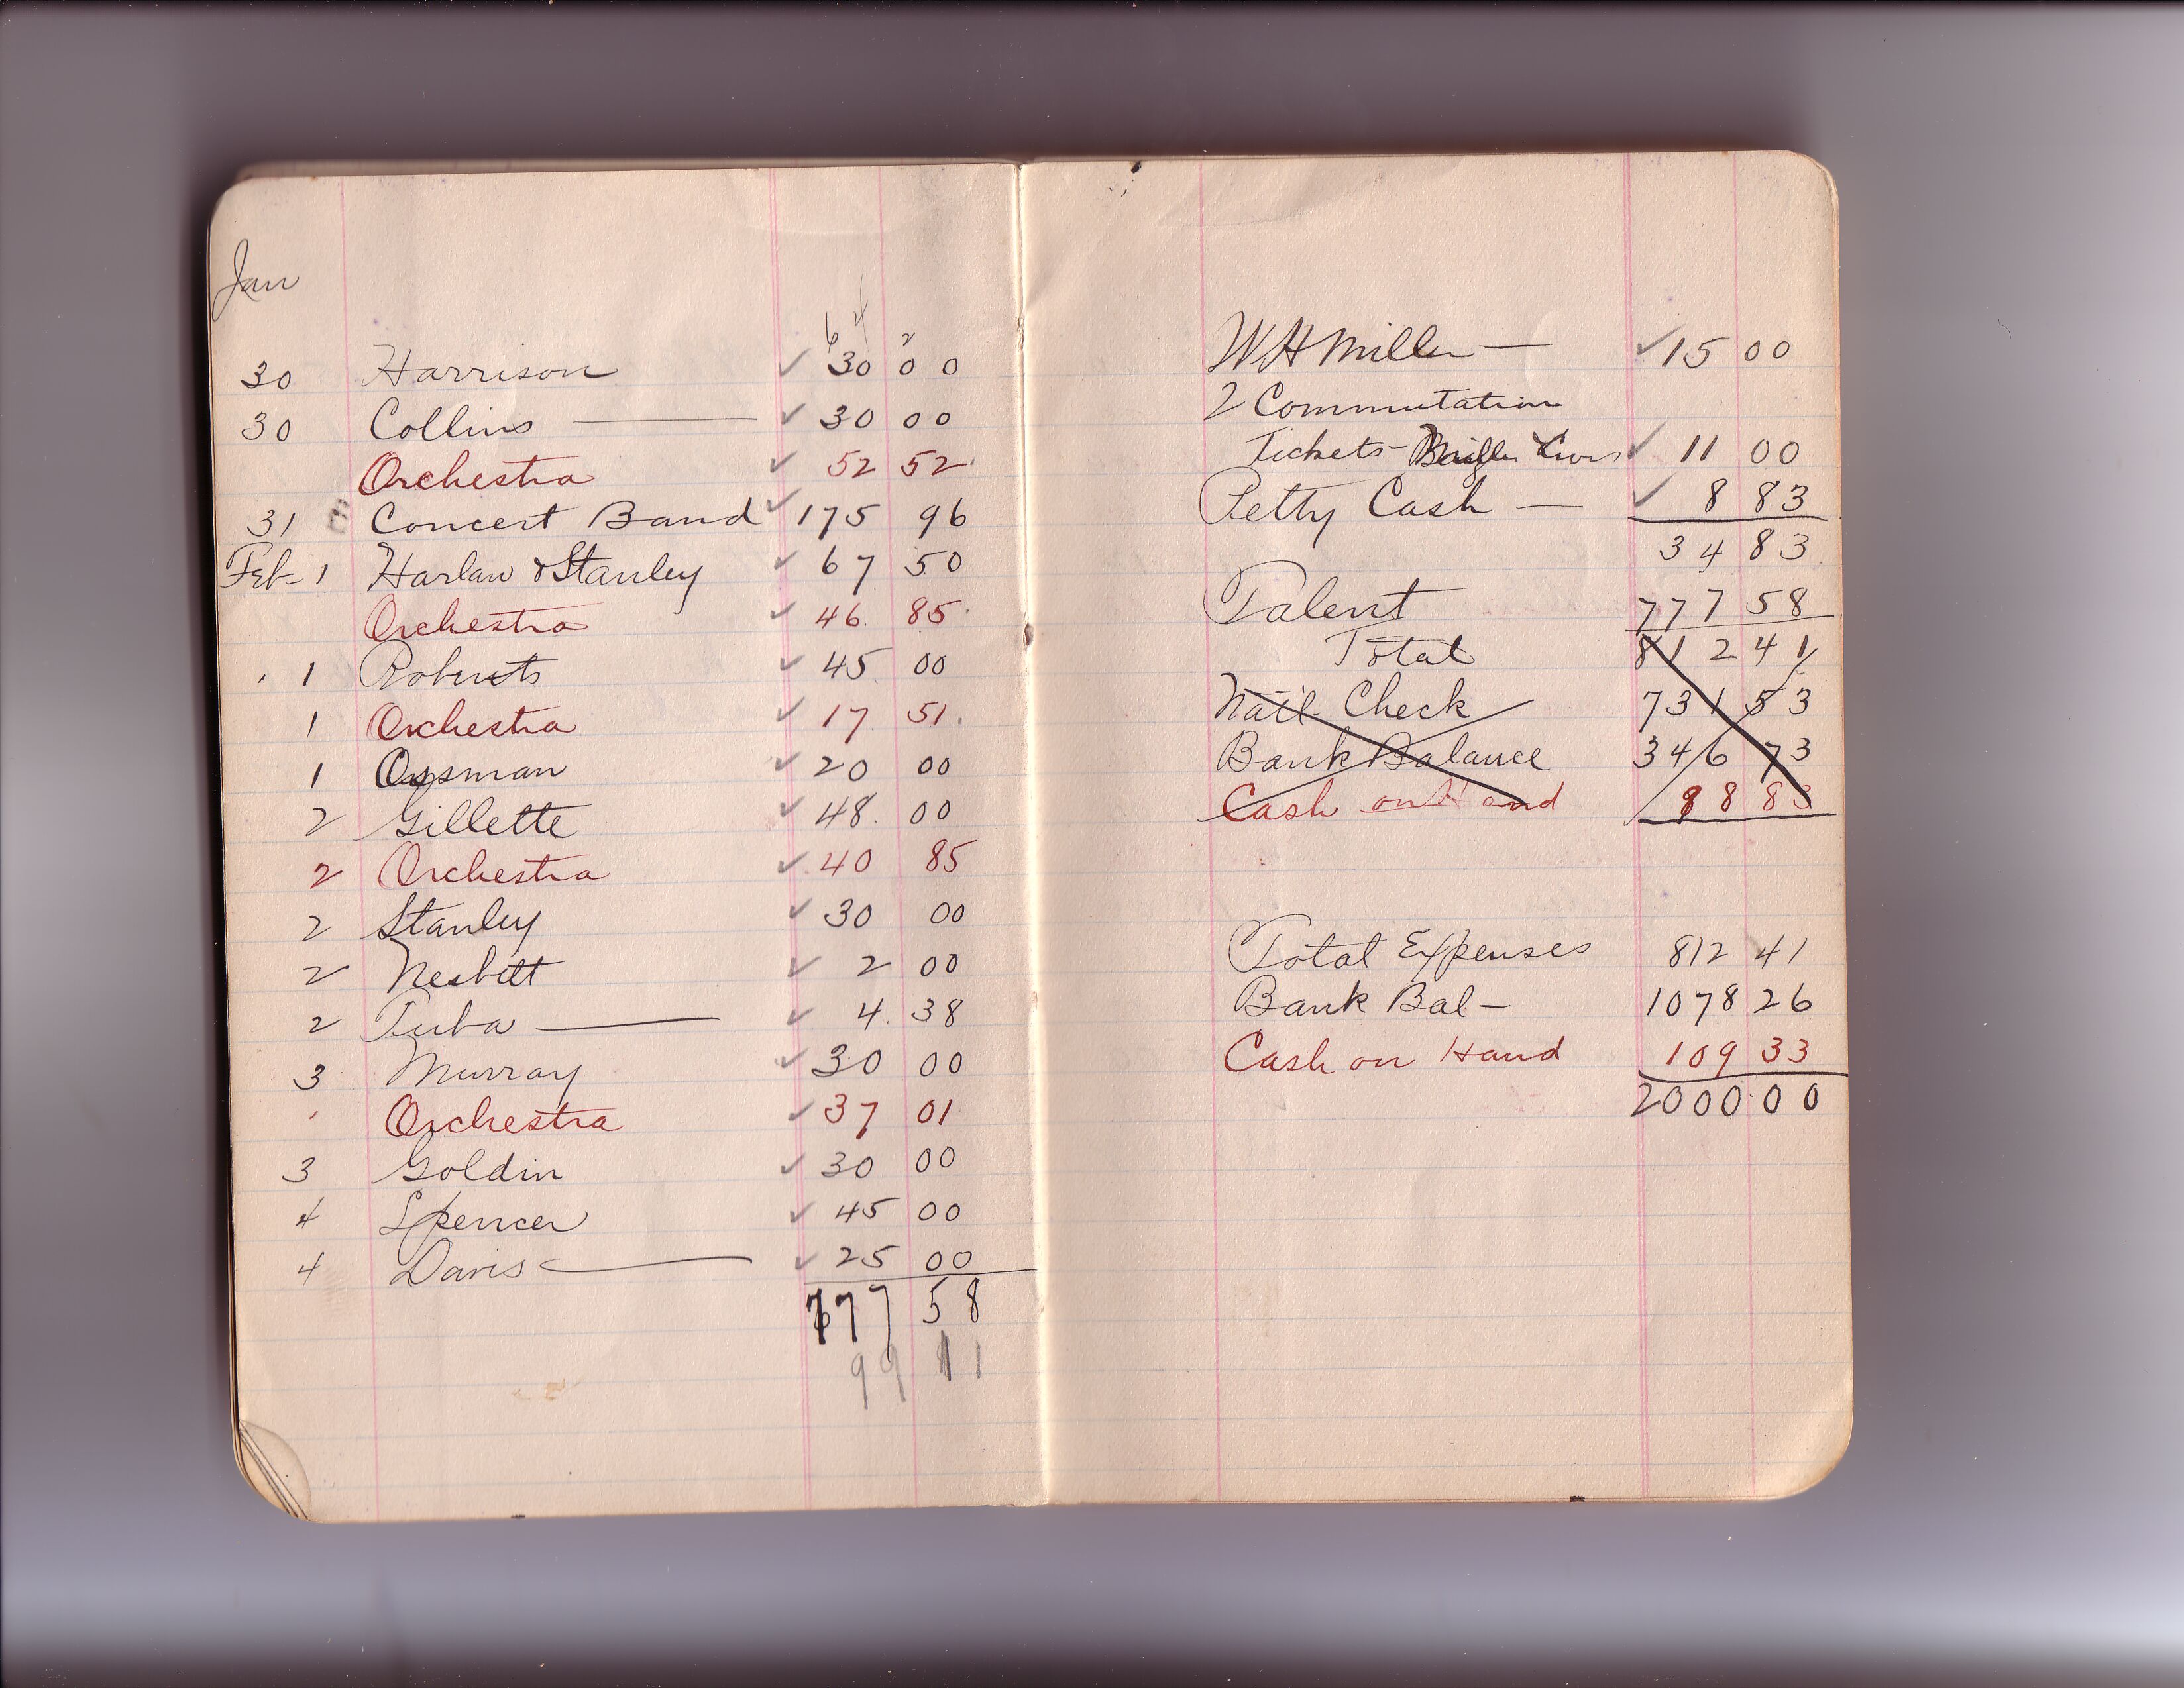 Jan
6 4 2
30 Harrison ✓ 30 00
30 Collins — ✓ 30 00
Orchestra ✓ 52 52
31 Concert Band ✓ 175 96
Feb- 1 Harlan & Stanley ✓ 67 50
Orchestra ✓ 46. 85
1 Roberts ✓ 45 00
1 Orchestra ✓ 17 51.
1 Ossman ✓ 20 00
2 Gillette ✓ 48. 00
2 Orchestra ✓ 40 85
2 Stanley ✓ 30 00
2 Nesbitt ✓ 2 00
2 Tuba — ✓ 4. 38
3 Murray ✓ 30 00
Orchestra ✓ 37 01
3 Goldin ✓ 30 00
4 Spencer ✓ 45 00
4 Davis — ✓ 25 00
777 58
99 11
W H Miller — ✓ 15 00
2 Commutation
Tickets - ✓ 11 00
Petty Cash — ✓ 8 83
34 83
Talent 777 58
Total 812 41
Nat'l Check 731 53
Bank Balance 346 73
Cash on Hand 88 83
Total Expenses 812 41
Bank Bal - 1078 26
Cash on Hand 109 33
2000 00